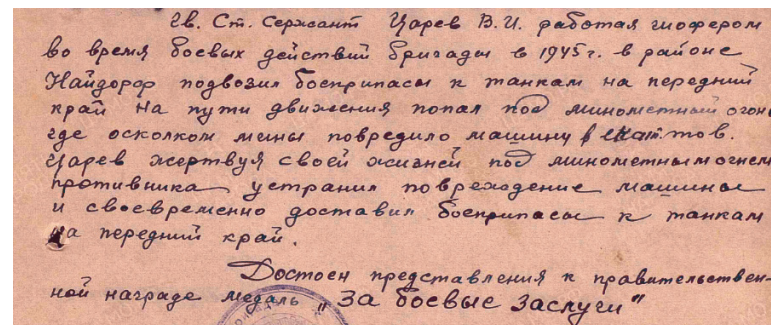 Гв. Ст. Сержант Царев В.И. работая шофером
во время боевых действий бригады в 1945 г. в районе
Найдорф подвозил боеприпасы к танкам на передний
край на пути движения попал под минометный огонь
где осколком мины повредило машину тов.
Царев жертвуя своей жизней под минометным огнем
противника устранил повреждение машины
и своевременно доставил боеприпасы к танкам
на передний край.
Достоен представления к правительствен-
ной награде медаль „За боевые заслуги"